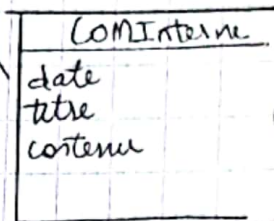 COMInterne
date
titre
contenu